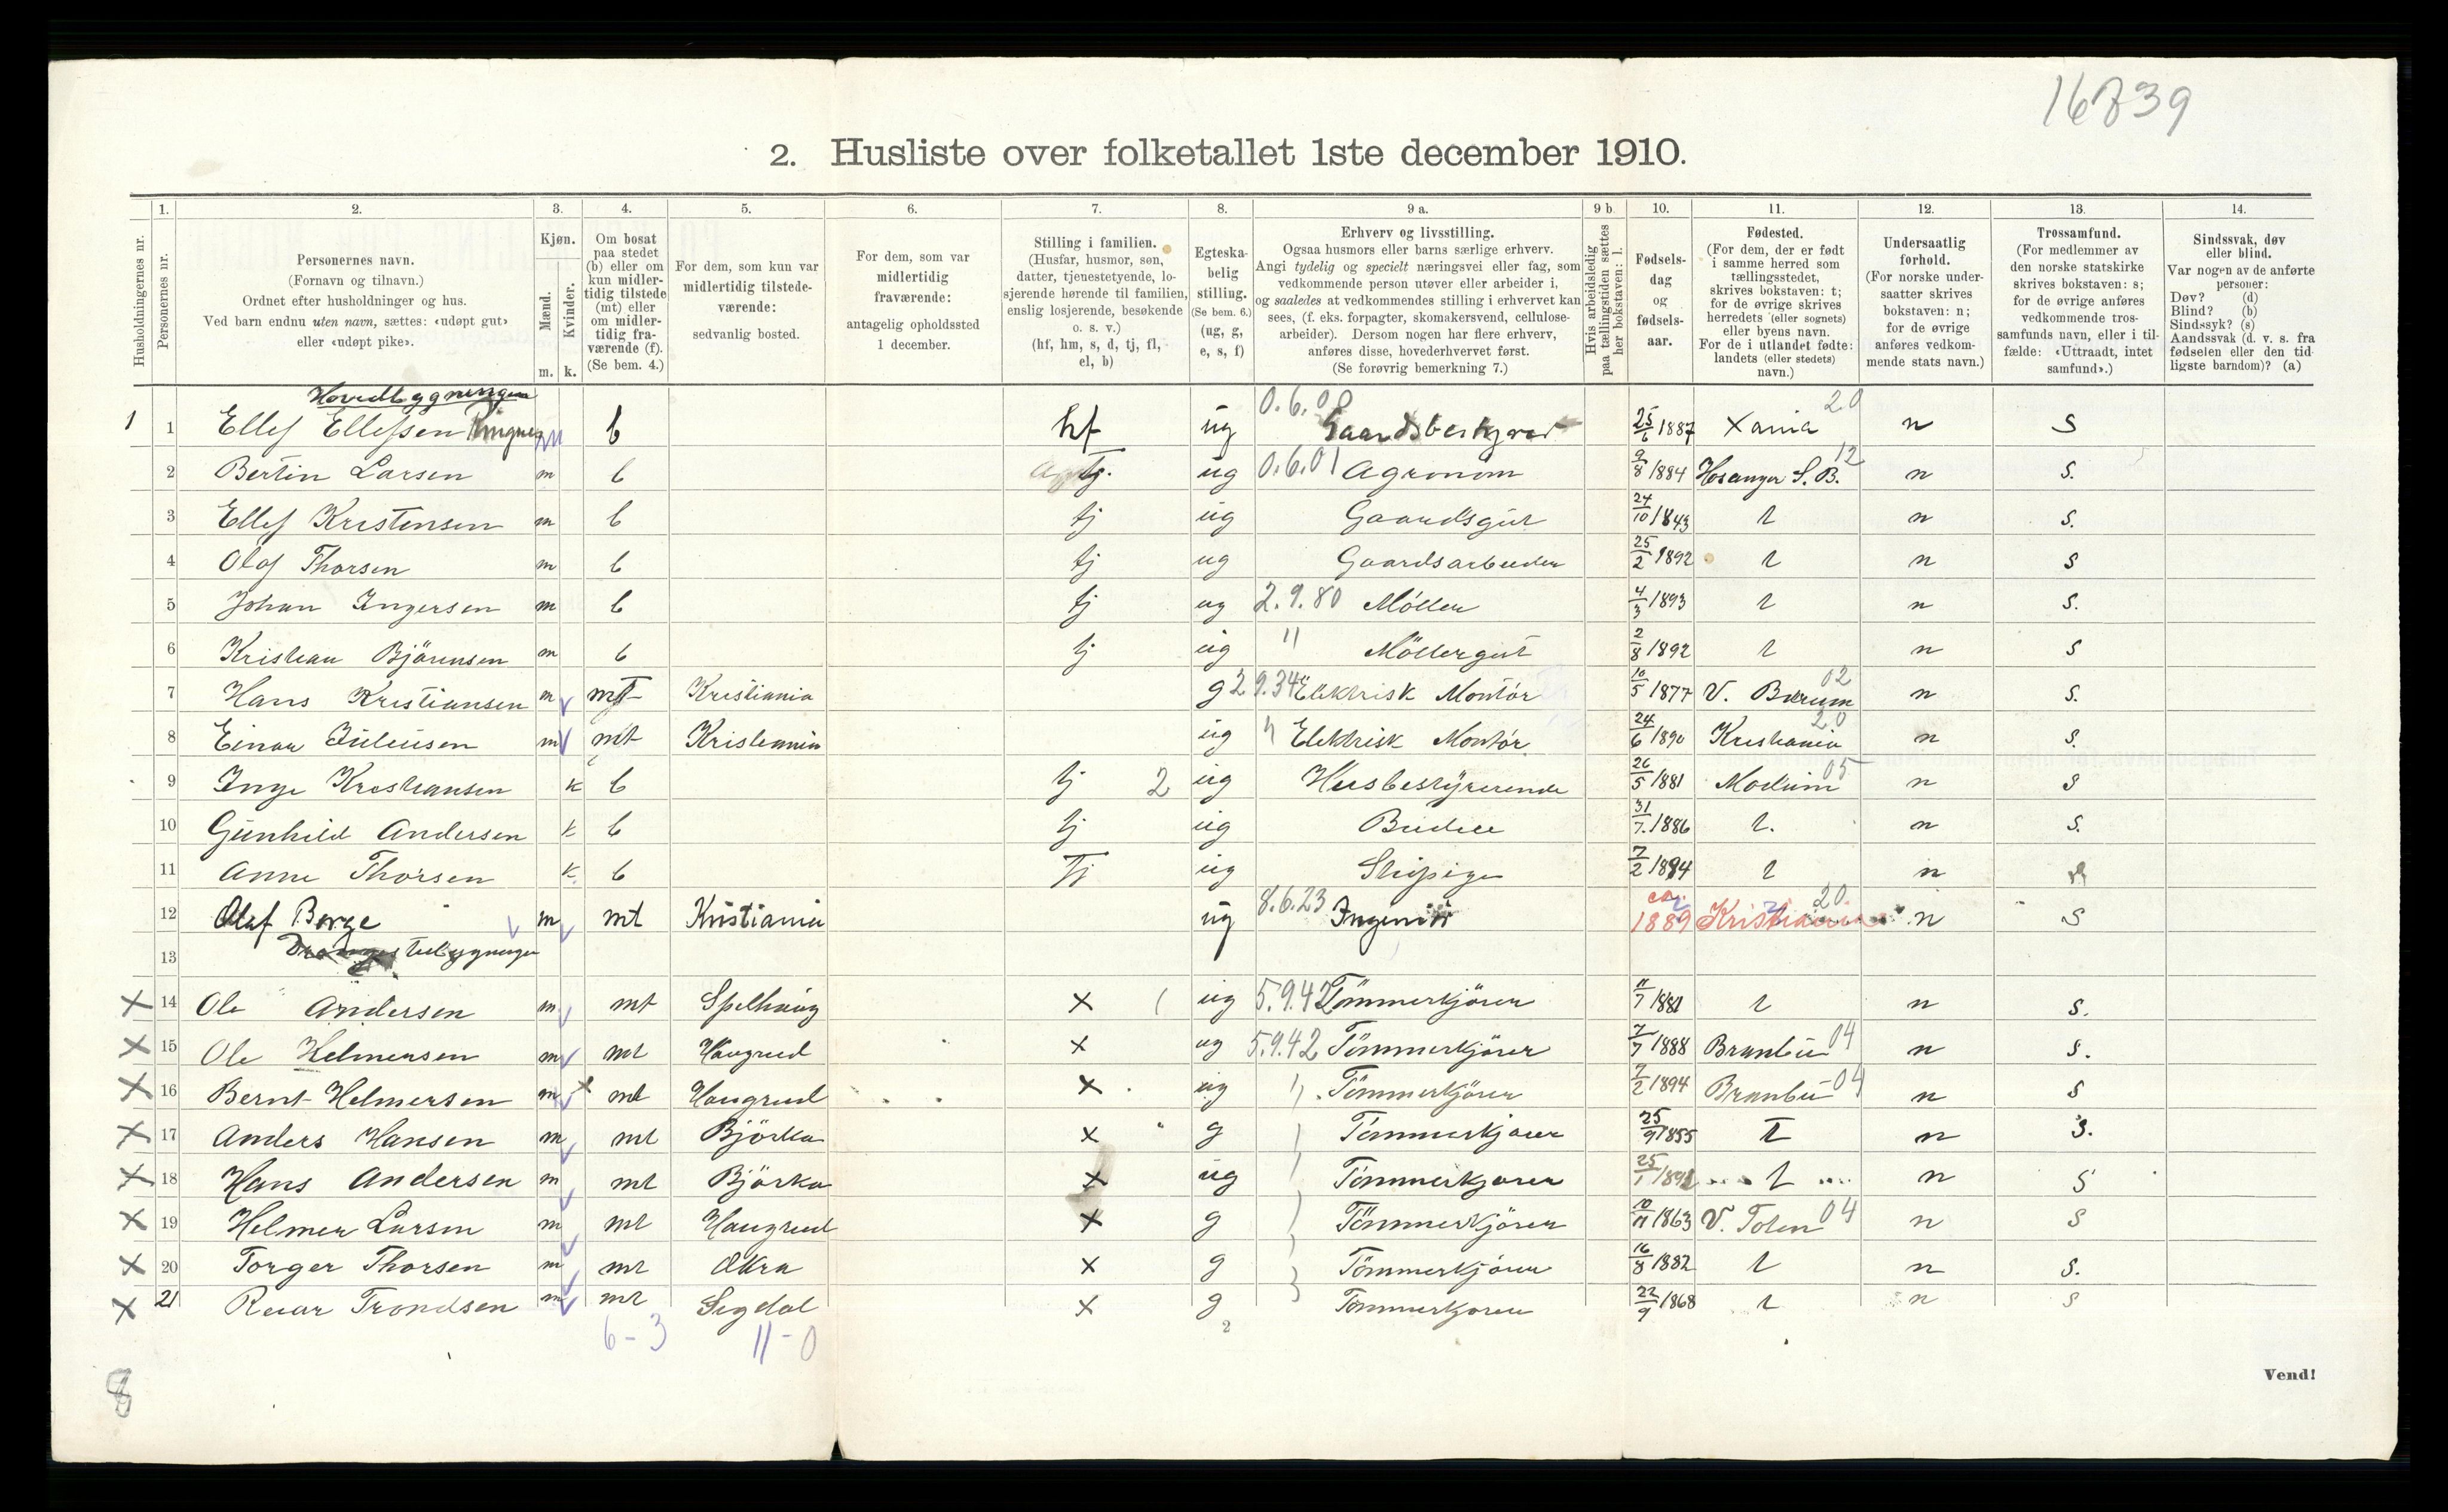 16739
2. Husliste over folketallet 1ste december 1910.
Husholdningernes nr.
1.
Personernes nr.
2.
Personernes navn.
(Fornavn og tilnavn.)
Ordnet efter husholdninger og hus.
Ved barn endnu uten navn, sættes: «udøpt gut»
eller «udøpt pike».
3.
Kjøn.
Mænd.
Kvinder.
m. k.
4.
Om bosat
paa stedet
(b) eller om
kun midler-
tidig tilstede
(mt) eller
om midler-
tidig fra-
værende (f).
(Se bem. 4.)
5.
For dem, som kun var
midlertidig tilstede-
værende:
sedvanlig bosted.
6.
For dem, som var
midlertidig
fraværende:
antagelig opholdssted
1 december.
7.
Stilling i familien.
(Husfar, husmor, søn,
datter, tjenestetyende, lo-
sjerende hørende til familien,
enslig losjerende, besøkende
o. s. v.)
(hf, hm, s, d, tj, fl,
el, b)
8.
Egteska-
belig
stilling.
(Se bem. 6.)
(ug, g,
e, s, f)
9 a.
Erhverv og livsstilling.
Ogsaa husmors eller barns særlige erhverv.
Angi tydelig og specielt næringsvei eller fag, som
vedkommende person utøver eller arbeider i,
og saaledes at vedkommendes stilling i erhvervet kan
sees, (f. eks. forpagter, skomakersvend, cellulose-
arbeider). Dersom nogen har flere erhverv,
anføres disse, hovederhvervet først.
(Se forøvrig bemerkning 7.)
9 b
Hvis arbeidsledig
paa tællingstiden sættes
her bokstaven: l.
10.
Fødsels-
dag
og
fødsels-
aar.
11.
Fødested.
(For dem, der er født
i samme herred som
tællingsstedet,
skrives bokstaven: t;
for de øvrige skrives
herredets (eller sognets)
eller byens navn.
For de i utlandet fødte:
landets (eller stedets)
navn.)
12.
Undersaatlig
forhold.
(For norske under-
saatter skrives
bokstaven: n;
for de øvrige
anføres vedkom-
mende stats navn.)
13.
Trossamfund.
(For medlemmer av
den norske statskirke
skrives bokstaven: s;
for de øvrige anføres
vedkommende tros-
samfunds navn, eller i til-
fælde: «Uttraadt, intet
samfund».)
14.
Sindssvak, døv
eller blind.
Var nogen av de anførte
personer:
Døv? (d)
Blind? (b)
Sindssyk? (s)
Aandssvak (d. v. s. fra
fødselen eller den tid-
ligste barndom)? (a)
Hovedbygningen
1 1 Ellef Ellefsen Ringnes m b hf ug 0.6.00 Gaardsbestyrer 25/6 1887 Xania 20 n S
2 Bertin Larsen m b tj. ug 0.6.01 Agronom 9/8 1884 Hosanger S. B. 12 n s.
3 Ellef Kristensen m b tj ug Gaardsgut 24/10 1843 t n s.
4 Olaf Thorsen m b tj ug Gaardsarbeider 25/2 1892 t n s
5 Johan Ingersen m b tj ug 2.9.80 Møller 4/3 1893 t n s.
6 Kristian Björnsen m b tj ug " Möllergut 2/8 1892 t n s
7 Hans Kristiansen m mt Kristiania g 2 9.34 Elektrisk Montör 10/5 1877 V. Bærum 02 n s.
8 Einar Juliusen m mt Kristiania ug " Elektrisk Montör. 24/6 1890 Kristiania 20 n s.
9 Inga Kristiansen k b tj 2 ug Husbestyrerende 26/5 1881 Modum 05 n s
10 Gunhild Andersen k b tj ug Budeie 31/7. 1886 t. n s.
11 Anne Thorsen k. b Tj ug 7/2 1894 t n
12 Olaf Borge m mt Kristiania ug 8.6.23 Ingeniör ca. 1889 Kristiania 20 n s
13
X 14 Ole Andersen m mt Spelhaug X ug 5.9.42 Tömmerkjörer 11/7 1881 t n s.
X 15 Ole Helmersen m mt Haugrud X ug 5.9.42 Tömmerkjörer 7/7 1888 Branbu 04 n s.
X 16 Bernt Helmersen m x mt Haugrud X ug " Tömmerkjörer 7/2 1894 Branbu 04 n s
X 17 Anders Hansen m mt Björka X g Tömmerkjörer 25/9 1855 t n s.
X 18 Hans Andersen m mt Björka X ug Tömmerkjorer 25/1 t n s
X 19 Helmer Larsen m mt Haugrud X g Tömmerkjörer 10/11 1863 V. Toten 04 n s
X 20 Torger Thorsen m mt Økra X g Tömmerkjörer 16/8 1882 t n s.
X 21 Reiar Trondsen m mt Sigdal X g Tömmerkjorer 22/9 1868 t n s
6-3 11-0 2
8
Vend!